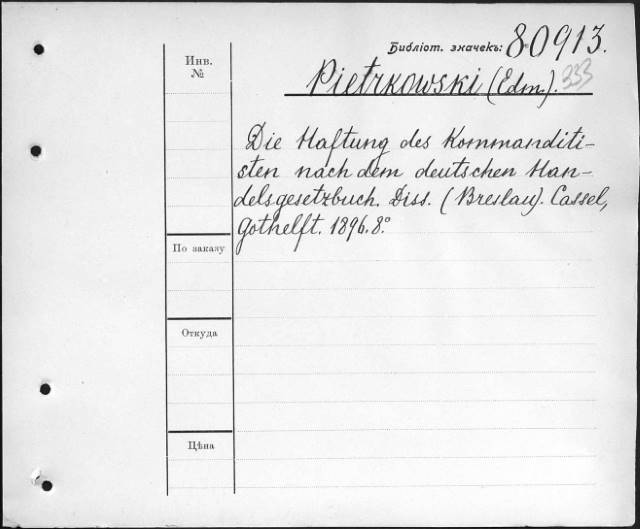 Библіот. значекъ: 80913.
Инв. №
Pietrkowski (Edm.). 333
Die Haftung des Kommanditi-
sten nach dem deutschen Han-
delsgesetzbuch. Diss. (Breslau). Cassel,
Gothelft. 1896. 8°
По заказу
Откуда
Цѣна